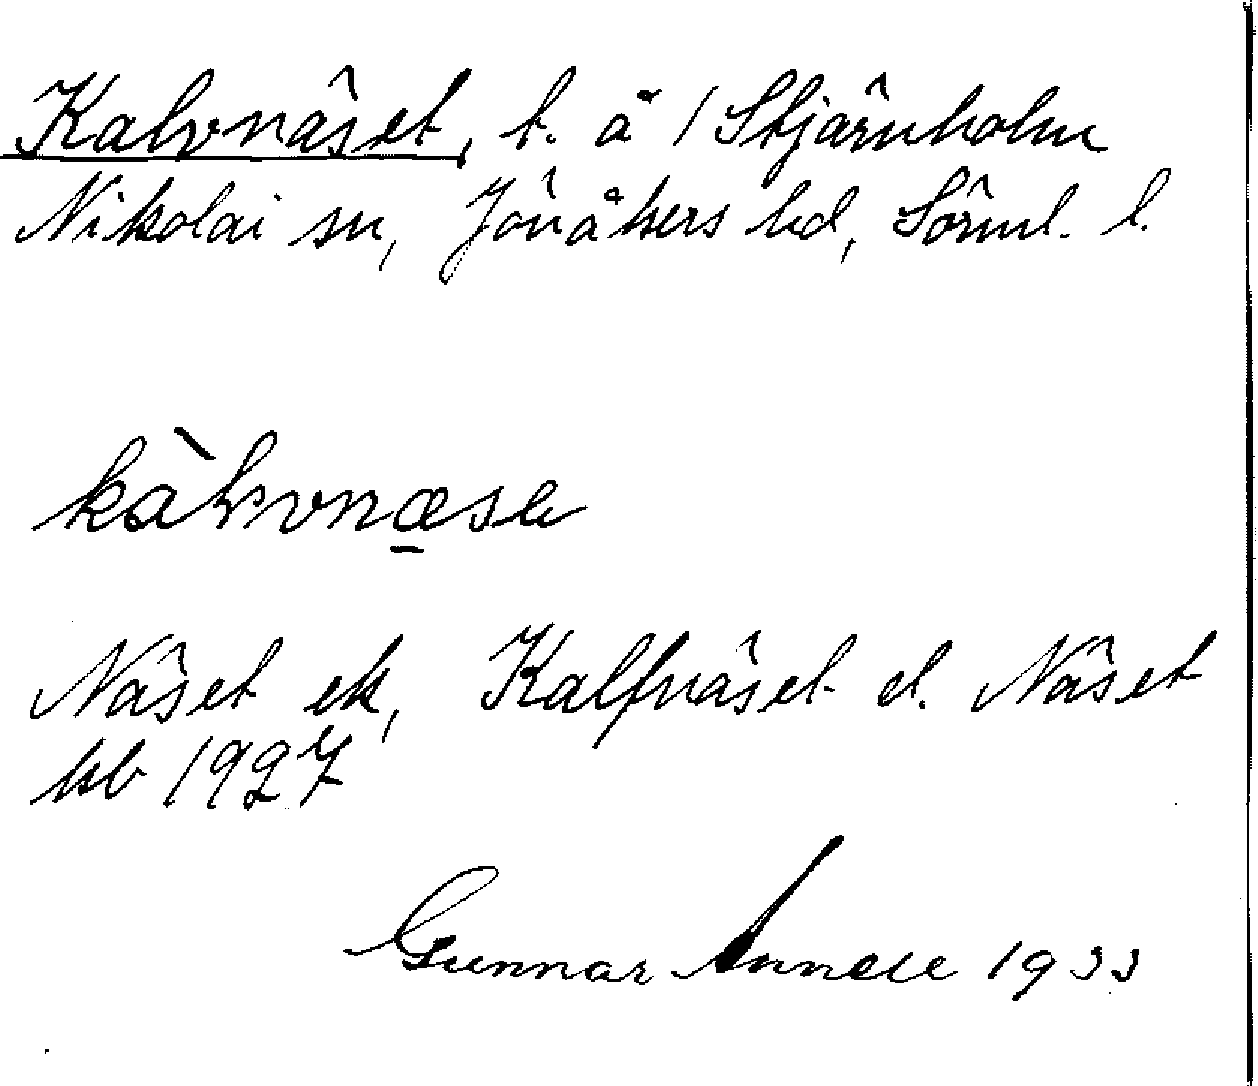 Kalvnäset, t. å /Stjärnholm
Nikolai sn, Jönåkers hd, Sörml. l.
kàlvnæse
Näset ek, Kalfnäset el. Näset
kb 1927
Gunnar Annell 1933